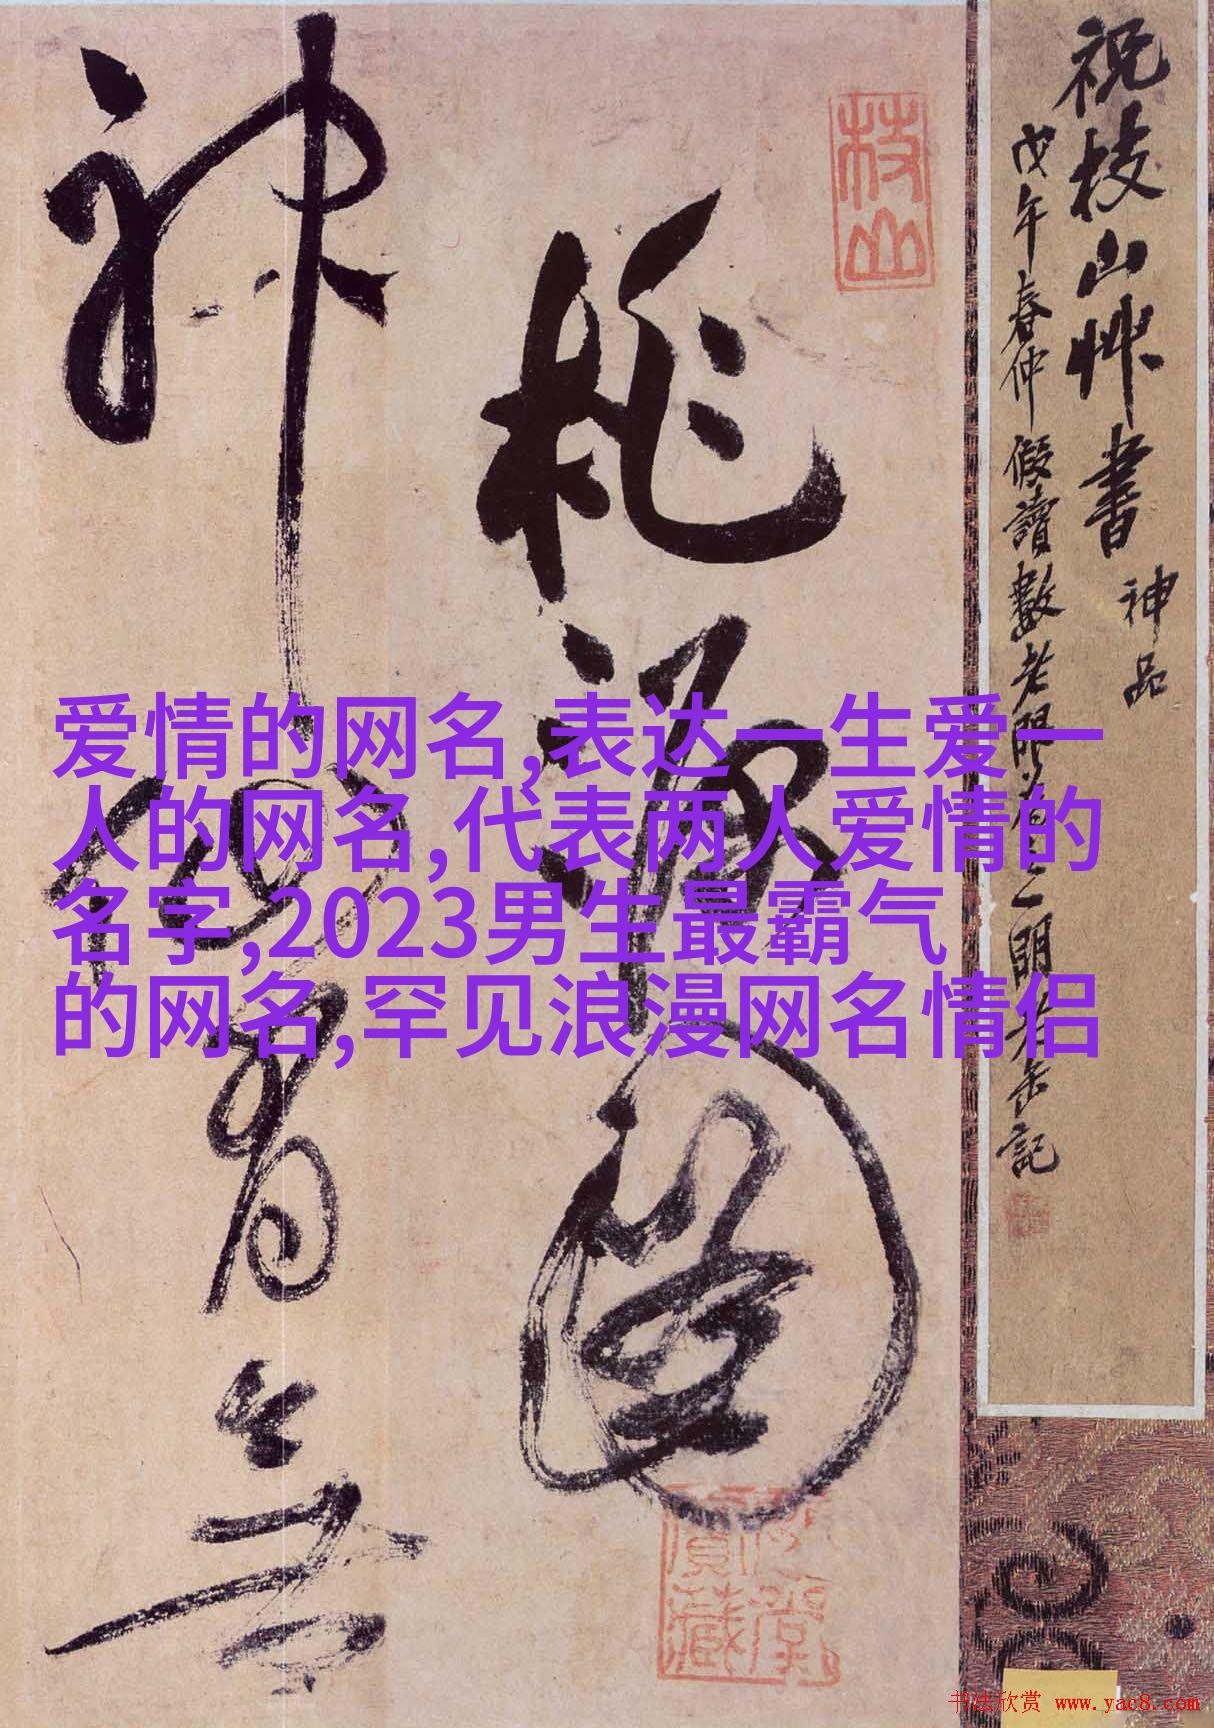 祝枝山艸書 神品
戊午春仲假讀數老眼為之明老缶記
枝山
桃源圖
神僊有無
爱情的网名,表达一生爱一
人的网名,代表两人爱情的
名字,2023男生最霸气
的网名,罕见浪漫网名情侣
书法欣赏 www.yac8.com